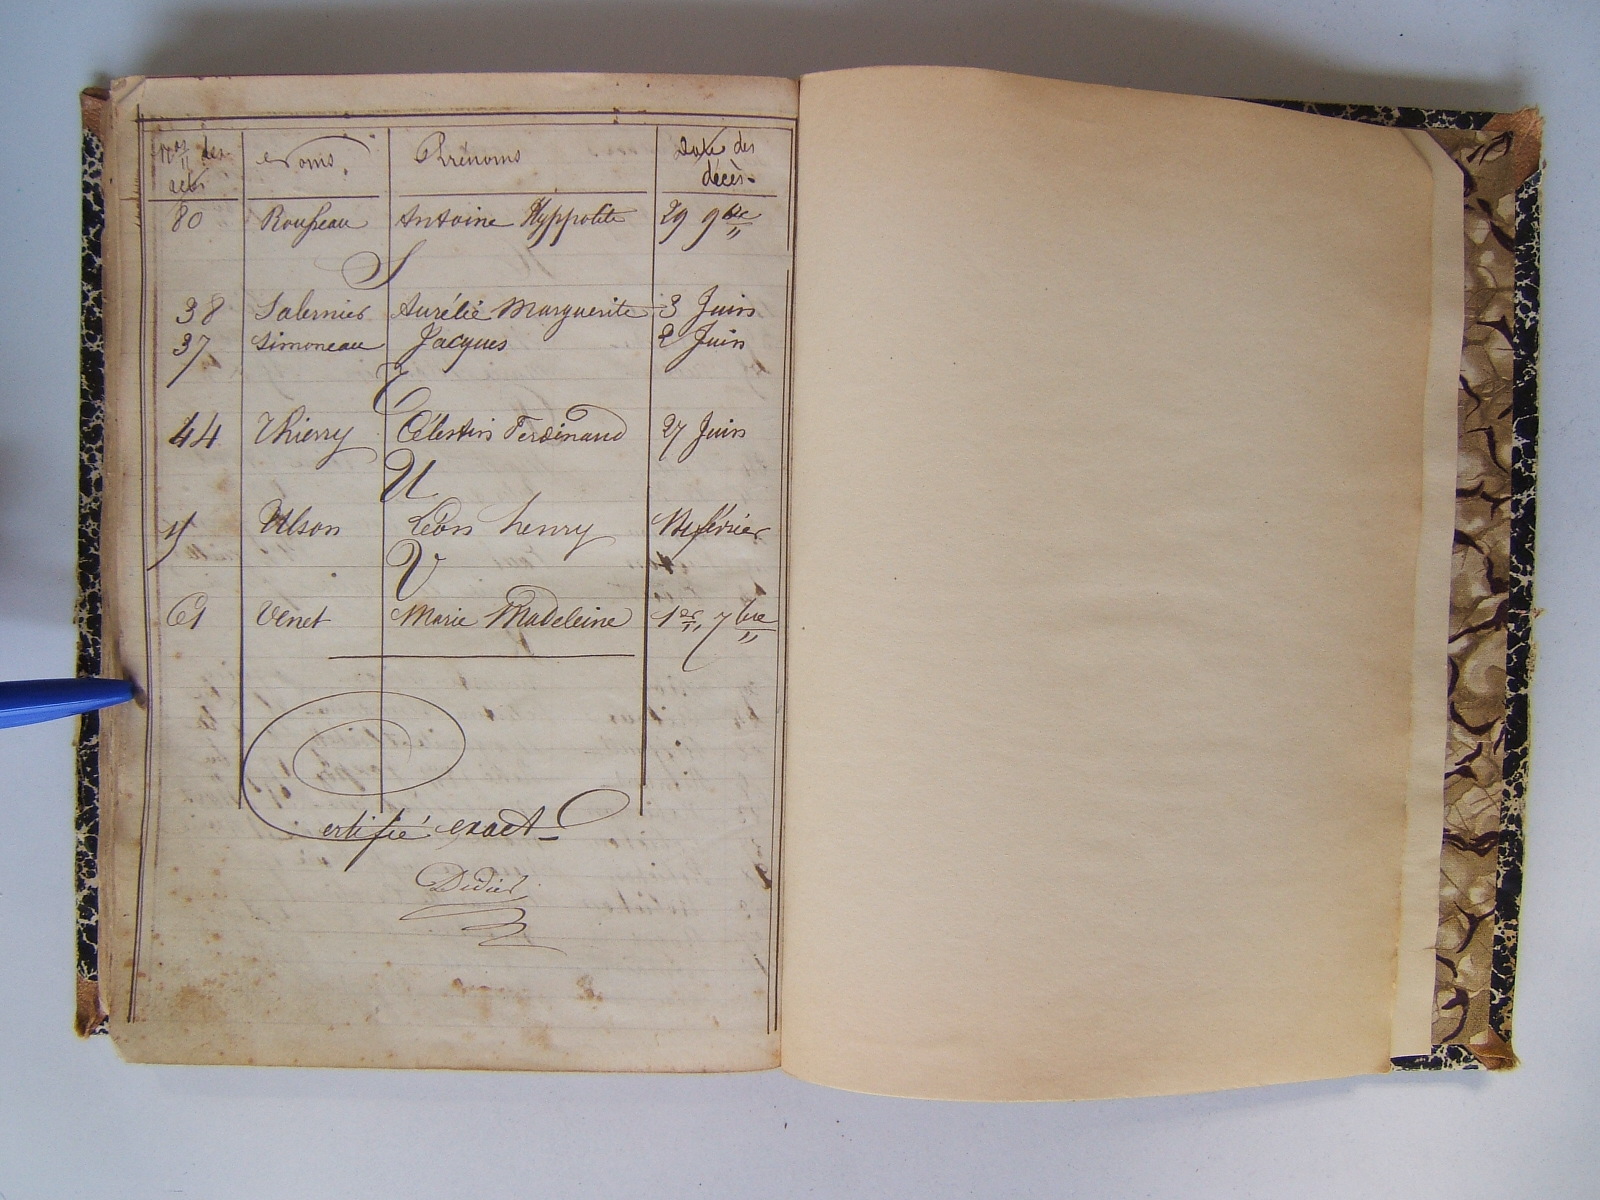 Nos des actes Noms. Prénoms Date des décès
80 Rousseau Antoine Hyppolite 29 9bre
S
38 Salernier Aurélie Marguerite 3 Juin
37 Simoneau Jacques 2 Juin
T
44 Thierry Célestin Ferdinand 27 Juin
U
Ulson Léon henry février
V
61 Venet Marie Madeleine 1er 7bre
Certifié exact
Didier